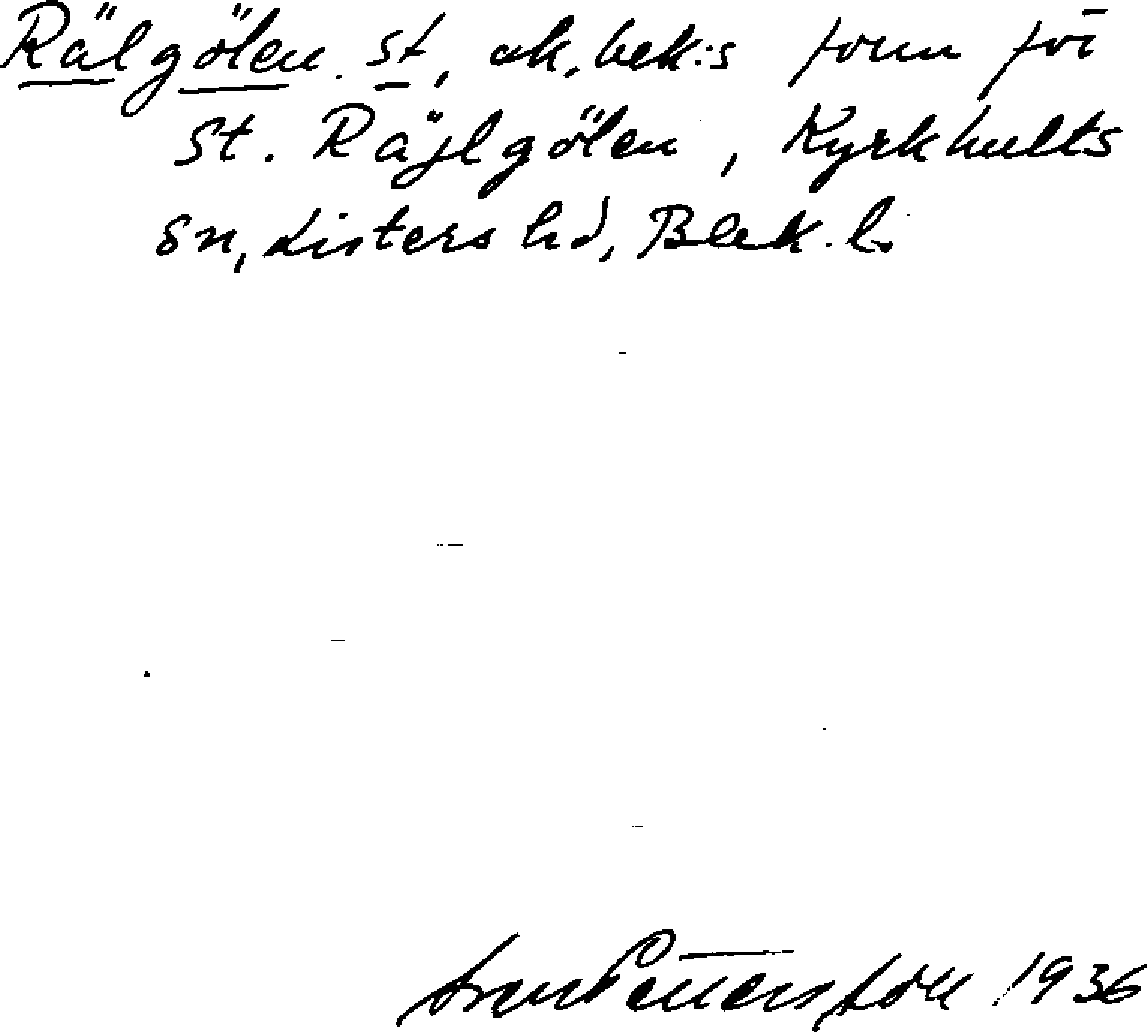 Rälgölen. St, ek.bek:s form för
St. Räjlgölen, Kyrkhults
sn, Listers hd, Blek. l.
Sven Pettersson 1936